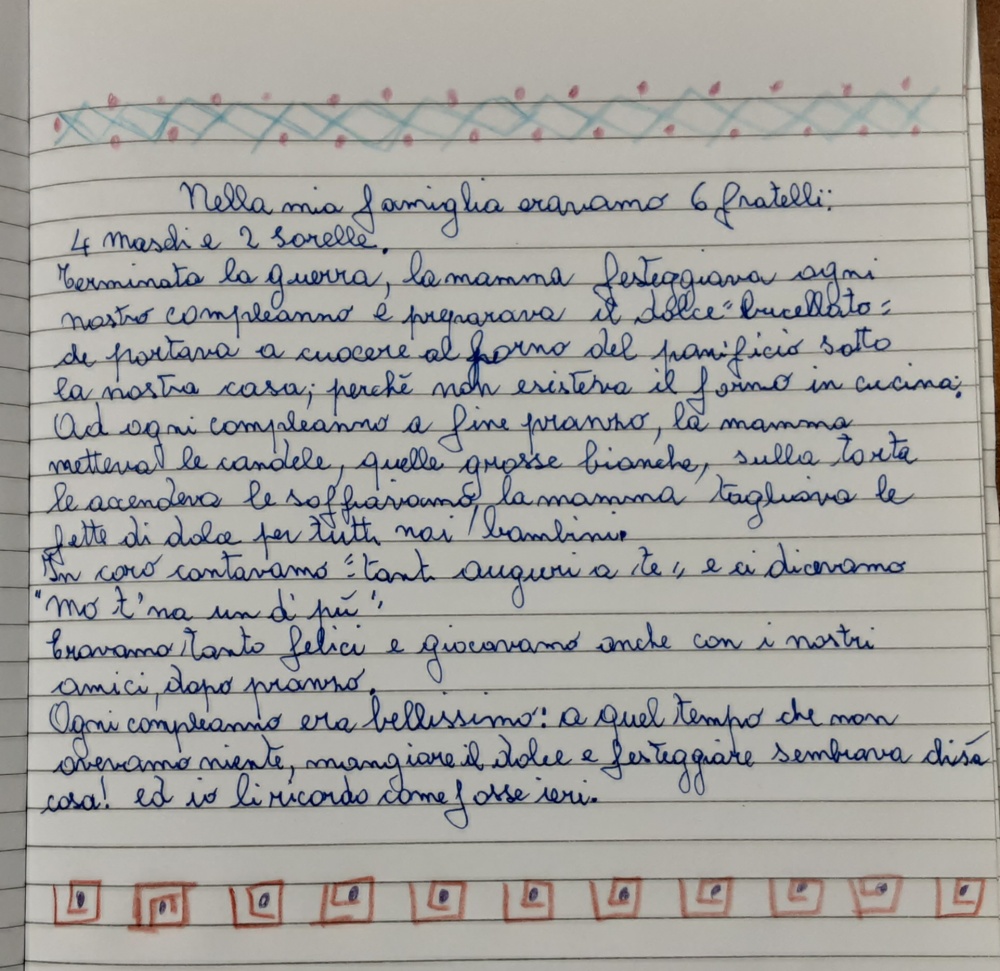 Nella mia famiglia eravamo 6 fratelli:
4 maschi e 2 sorelle.
Terminata la guerra, la mamma festeggiava ogni
nostro compleanno e preparava il dolce "bucellato"
che portava a cuocere al forno del panificio sotto
la nostra casa; perchè non esisteva il forno in cucina;
Ad ogni compleanno a fine pranzo, la mamma
metteva le candele, quelle grosse bianche, sulla torta
le accendeva le soffiavamo, la mamma tagliava le
fette di dolce per tutti noi bambini.
In coro cantavamo "tanti auguri a te" e ci dicevamo
"Mo t'na un dí piú"
Eravamo tanto felici e giocavamo anche con i nostri
amici, dopo pranzo.
Ogni compleanno era bellissimo: a quel tempo che non
avevamo niente, mangiare il dolce e festeggiare sembrava chisà
cosa! ed io li ricordo come fosse ieri.